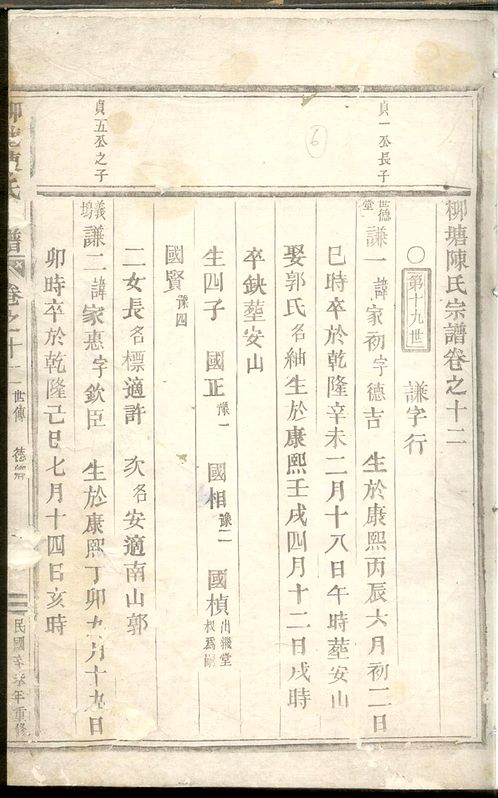 柳塘陳氏宗譜卷之十二
○第十九世 謙字行
貞一公長子
世德堂
謙一 諱家初字德吉 生於康熙丙辰六月初二日
巳時卒於乾隆辛未二月十八日午時塟安山
娶郭氏名紬生於康熙壬戌四月十二日戌時
卒缺塟安山
生四子 國正豫一 國相豫二 國楨出繼堂叔為嗣
國賢豫四
二女長名標適許 次名安適南山郭
貞五公之子
義塢
謙二諱家惠字欽臣 生於康熙丁卯九月十九日
卯時卒於乾隆己巳七月十四日亥時
譜 卷之十二 世傳
民國 年重修
6